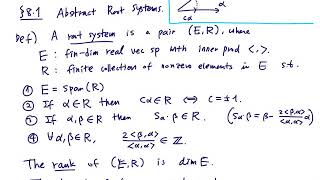 §8.1 Abstract Root Systems.
cα
Def) A root system is a pair (E, R), where
E : fin-dim real vec sp with inner prod <·,·>.
R : finite collection of nonzero elements in E s.t.
① E = Span(R)
② If α∈R then cα∈R ⟺ c=±1.
③ If α,β∈R, then Sα·β∈R. (Sα·β = β - 2<β,α>/<α,α> α)
④ ∀α,β∈R, 2<β,α>/<α,α> ∈ ℤ.
The rank of (E,R) is dim E.